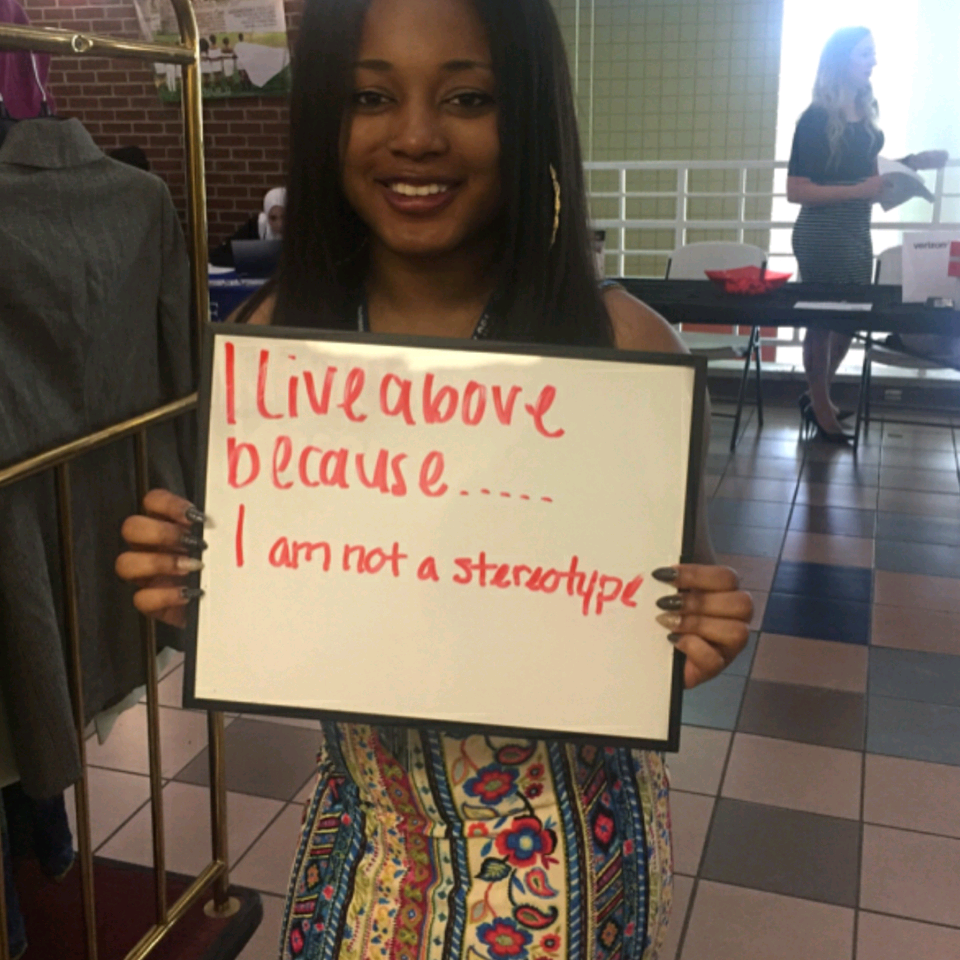 I Live above
because.....
I am not a stereotype
verizon